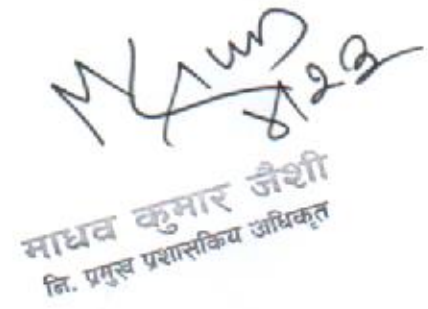 माधव कुमार जैशी
नि. प्रमुख प्रशासकिय अधिकृत